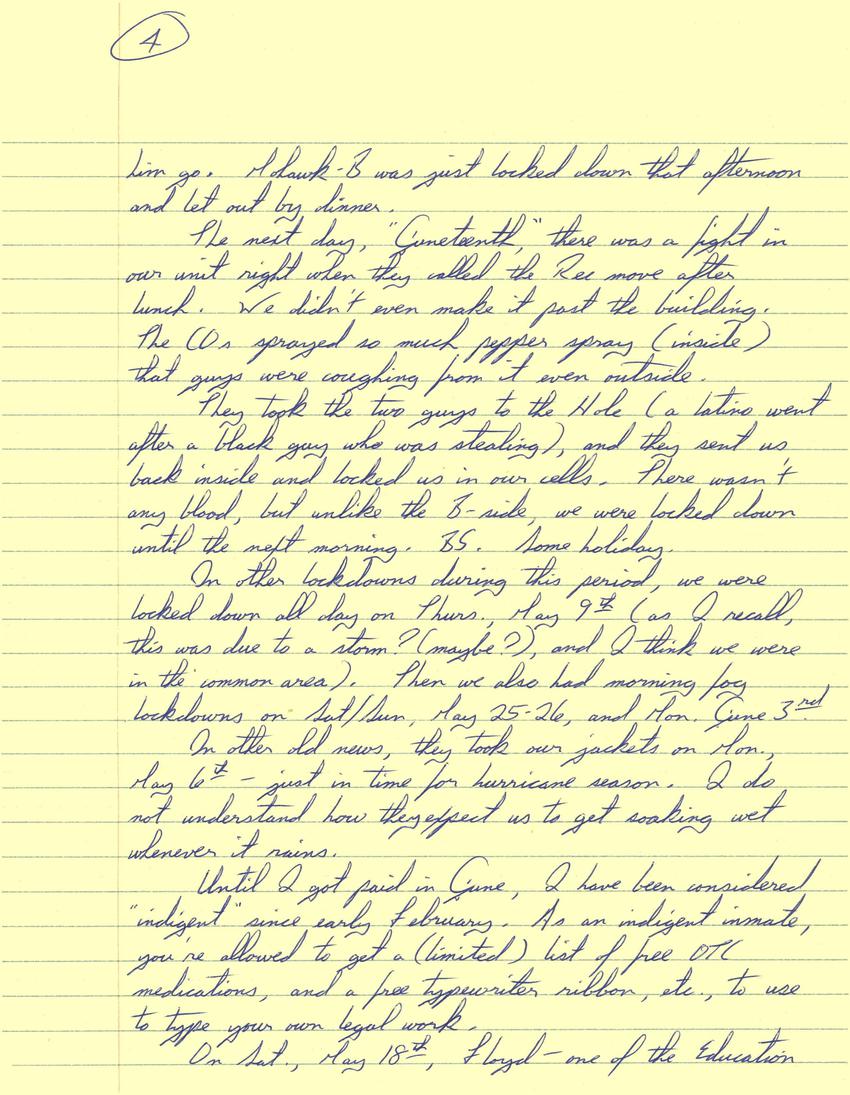 4
him go. Mohawk-B was just locked down that afternoon
and let out by dinner.
The next day, "Juneteenth," there was a fight in
our unit right when they called the Rec move after
lunch. We didn't even make it past the building.
The COs sprayed so much pepper spray (inside)
that guys were coughing from it even outside.
They took the two guys to the Hole (a latino went
after a black guy who was stealing), and they sent us
back inside and locked us in our cells. There wasn't
any blood, but unlike the B-side, we were locked down
until the next morning. BS. Some holiday.
In other lockdowns during this period, we were
locked down all day on Thurs., May 9th (as I recall,
this was due to a storm? (maybe?), and I think we were
in the common area). Then we also had morning fog
lockdowns on Sat/Sun, May 25-26, and Mon. June 3rd.
In other old news, they took our jackets on Mon.,
May 6th – just in time for hurricane season. I do
not understand how they expect us to get soaking wet
whenever it rains.
Until I got paid in June, I have been considered
"indigent" since early February. As an indigent inmate,
you're allowed to get a (limited) list of free OTC
medications, and a free typewriter ribbon, etc., to use
to type your own legal work.
On Sat., May 18th, Floyd – one of the Education